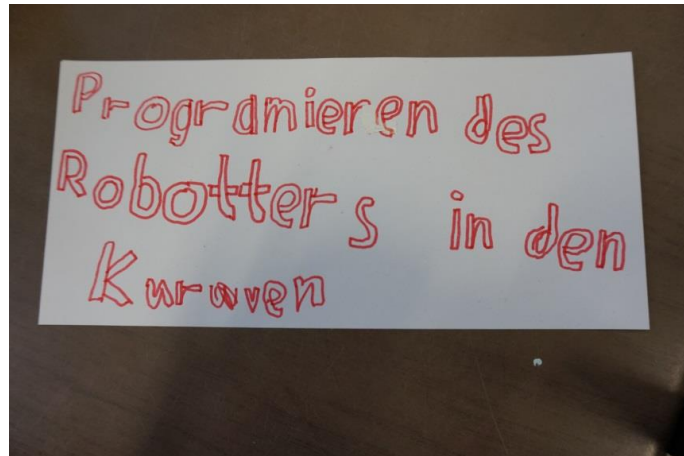 Programieren des
Robotters in den
Kurwven